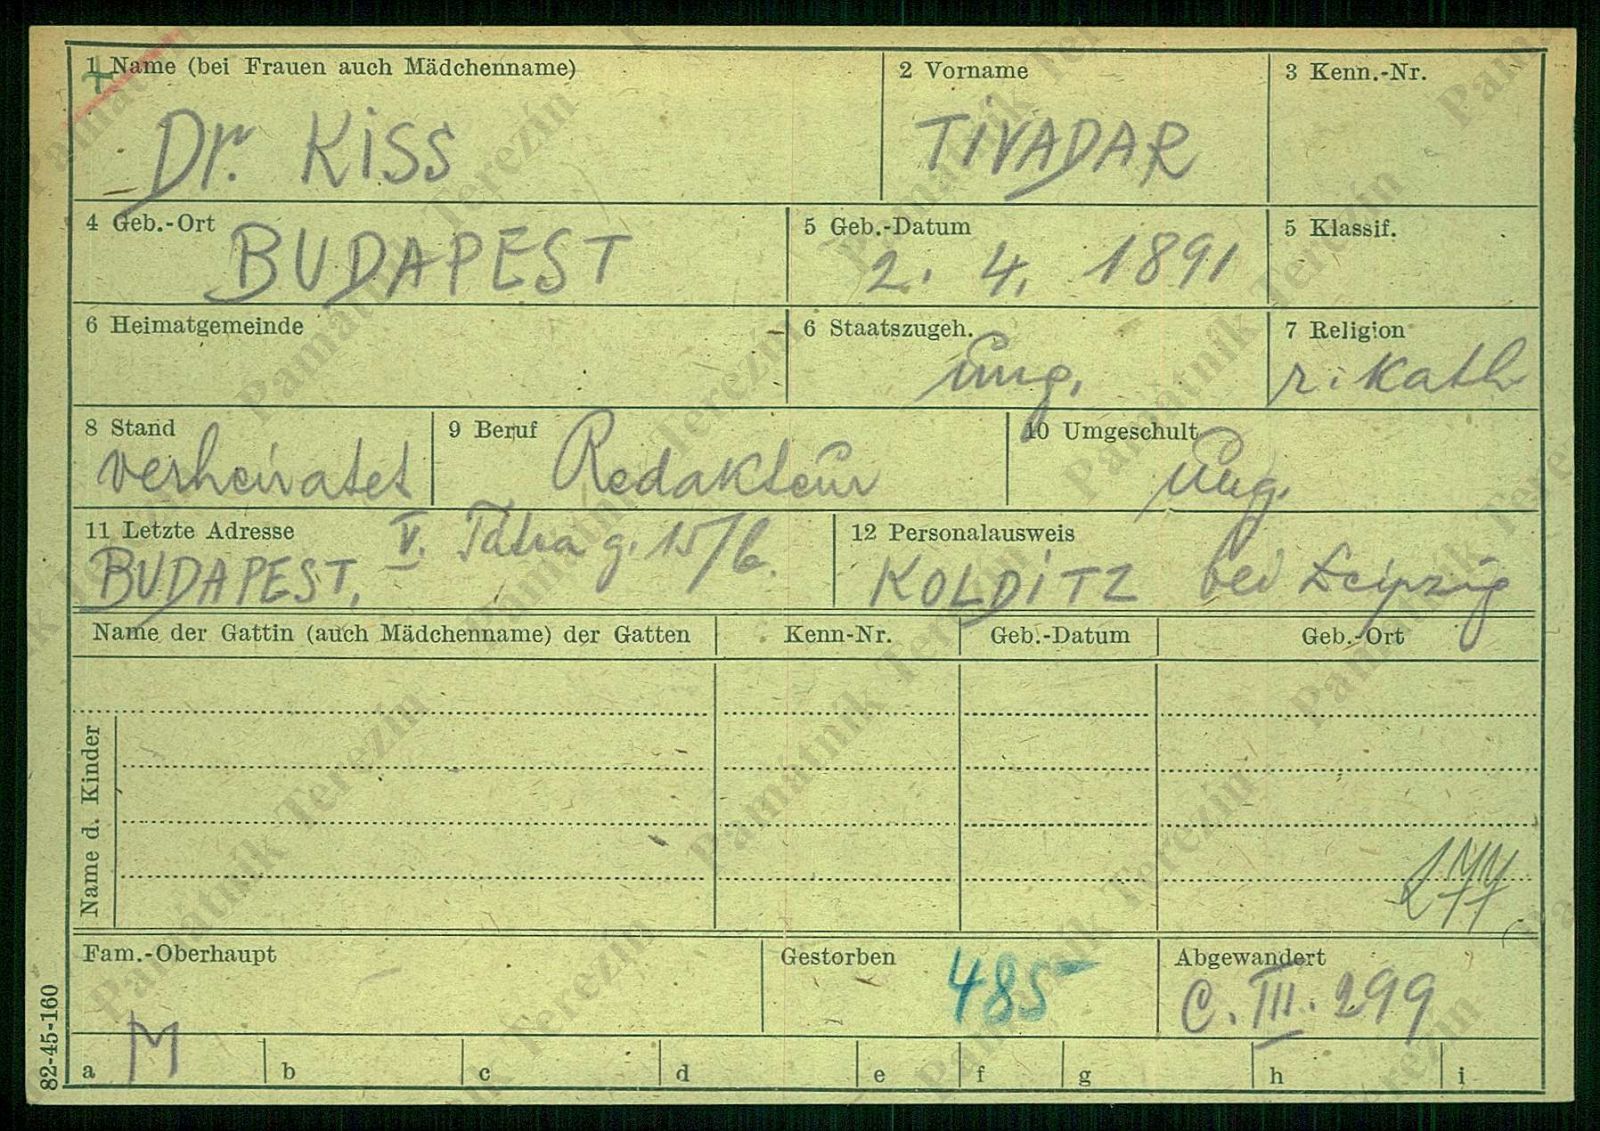 1 Name (bei Frauen auch Mädchenname)
Dr. KISS
2 Vorname
TIVADAR
3 Kenn.-Nr.
4 Geb.-Ort
BUDAPEST
5 Geb.-Datum
2. 4. 1891
5 Klassif.
6 Heimatgemeinde
6 Staatszugeh.
ung.
7 Religion
r. kath
8 Stand
verheiratet
9 Beruf
Redakteur
10 Umgeschult
ung.
11 Letzte Adresse
BUDAPEST, V. Tátra g. 15/b.
12 Personalausweis
KOLDITZ bei Leipzig
Name der Gattin (auch Mädchenname) der Gatten
Kenn-Nr.
Geb.-Datum
Geb.-Ort
Name d. Kinder
277
Fam.-Oberhaupt
Gestorben
485
Abgewandert
C. III. 299
82-45-160
a M b c d e f g h i
Památník Terezín